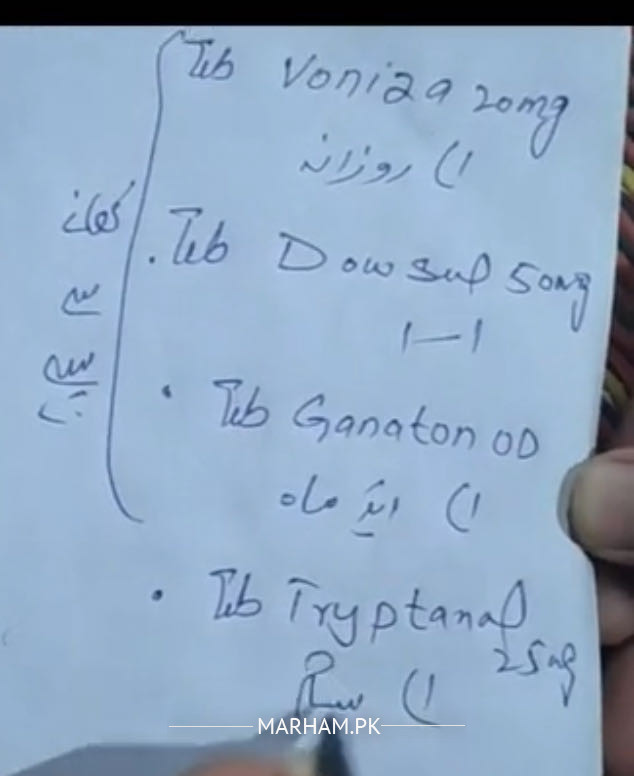 Tab Voniza 20mg
(1 روزانہ
کھانے
Tab Dowsul 50mg
سے
1—1
پہلے
Tab Ganaton OD
(1 ایک ماہ
Tab Tryptanol
25mg
(1
MARHAM.PK